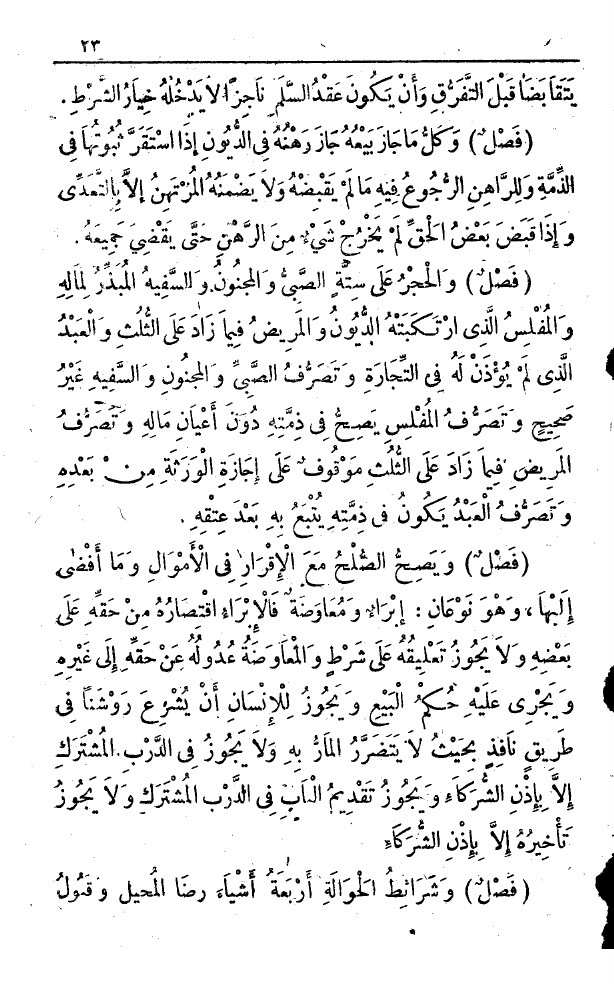 ٢٣
يَتَقَابَضَا قَبْلَ التَّفَرُّقِ وَأَنْ يَكُونَ عَقْدُ السَّلَمِ نَاجِزًا لَا يَدْخُلُهُ خِيَارُ الشَّرْطِ.
(فَصْلٌ) وَكُلُّ مَا جَازَ بَيْعُهُ جَازَ رَهْنُهُ فِى الدُّيُونِ إِذَا اسْتَقَرَّ ثُبُوتُهَا فِى
الذِّمَّةِ وَلِلرَّاهِنِ الرُّجُوعُ فِيهِ مَا لَمْ يَقْبِضْهُ وَلَا يَضْمَنُهُ الْمُرْتَهِنُ إِلَّا بِالتَّعَدِّى
وَإِذَا قَبَضَ بَعْضَ الْحَقِّ لَمْ يَخْرُجْ شَىْءٌ مِنَ الرَّهْنِ حَتَّى يَقْضِيَ جَمِيعَهُ.
(فَصْلٌ) وَالْحَجْرُ عَلَى سِتَّةٍ الصَّبِىُّ وَالْمَجْنُونُ وَالسَّفِيهُ الْمُبَذِّرُ لِمَالِهِ
وَالْمُفْلِسُ الَّذِى ارْتَكَبَتْهُ الدُّيُونُ وَالْمَرِيضُ فِيمَا زَادَ عَلَى الثُّلُثِ وَالْعَبْدُ
الَّذِى لَمْ يُؤْذَنْ لَهُ فِى التِّجَارَةِ وَتَصَرُّفُ الصَّبِىِّ وَالْمَجْنُونِ وَالسَّفِيهِ غَيْرُ
صَحِيحٍ وَتَصَرُّفُ الْمُفْلِسِ يَصِحُّ فِى ذِمَّتِهِ دُونَ أَعْيَانِ مَالِهِ وَتَصَرُّفُ
الْمَرِيضِ فِيمَا زَادَ عَلَى الثُّلُثِ مَوْقُوفٌ عَلَى إِجَازَةِ الْوَرَثَةِ مِنْ بَعْدِهِ
وَتَصَرُّفُ الْعَبْدِ يَكُونُ فِى ذِمَّتِهِ يُتْبَعُ بِهِ بَعْدَ عِتْقِهِ.
(فَصْلٌ) وَيَصِحُّ الصُّلْحُ مَعَ الْإِقْرَارِ فِى الْأَمْوَالِ وَمَا أَفْضَى
إِلَيْهَا، وَهُوَ نَوْعَانِ: إِبْرَاءٌ وَمُعَاوَضَةٌ فَالْإِبْرَاءُ اقْتِصَارُهُ مِنْ حَقِّهِ عَلَى
بَعْضِهِ وَلَا يَجُوزُ تَعْلِيقُهُ عَلَى شَرْطٍ وَالْمُعَاوَضَةُ عُدُولُهُ عَنْ حَقِّهِ إِلَى غَيْرِهِ
وَيَجْرِى عَلَيْهِ حُكْمُ الْبَيْعِ وَيَجُوزُ لِلْإِنْسَانِ أَنْ يُشْرِعَ رَوْشَنًا فِى
طَرِيقٍ نَافِذٍ بِحَيْثُ لَا يَتَضَرَّرُ الْمَارُّ بِهِ وَلَا يَجُوزُ فِى الدَّرْبِ الْمُشْتَرَكِ
إِلَّا بِإِذْنِ الشُّرَكَاءِ وَيَجُوزُ تَقْدِيمُ الْبَابِ فِى الدَّرْبِ الْمُشْتَرَكِ وَلَا يَجُوزُ
تَأْخِيرُهُ إِلَّا بِإِذْنِ الشُّرَكَاءِ
(فَصْلٌ) وَشَرَائِطُ الْحَوَالَةِ أَرْبَعَةُ أَشْيَاءَ رِضَا الْمُحِيلِ وَقَبُولُ